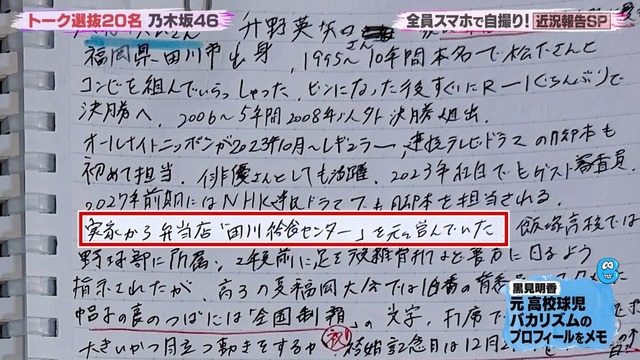 トーク選抜20名 乃木坂46
全員スマホで自撮り! 近況報告SP
升野英知
福岡県田川市出身, 1995~10年間本名で松下さんと
コンビを組んでいらっしゃった。ピンになった後すぐにR-1ぐらんぷりで
決勝へ. 2006~5年間2008年以外決勝進出.
オールナイトニッポンが2023年10月~レギュラー, 連続テレビドラマの脚本も
初めて担当. 俳優さんとしても活躍. 2023年紅白でもゲスト審査員.
2027年前期にはNHK連ドラマでも脚本を担当される.
実家から弁当店「田川給食センター」を元々営んでいた
飯塚高校では
野球部に所属。2年前に足を複雑骨折
指示されたが、高3の夏福岡大会では
帽子の裏のつばには「全国制覇」の文字,
祝
大きいかつ目立つ動きをする
結婚記念日は12月2
黒見明香
元 高校球児
バカリズムの
プロフィールをメモ